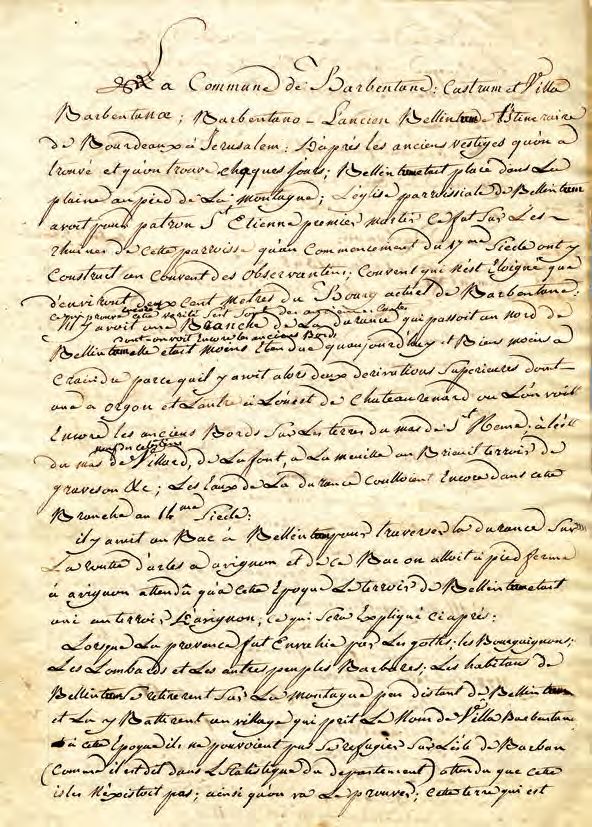 La Commune de Barbentane; Castrum et Villa
Barbentanæ; Barbentano - L'ancien Bellintum de L'itineraire
de Bourdeaux à Jerusalem; D'après les anciens vestiges qu'on a
trouvé et qu'on trouve chaques Jours; Bellintum etait placé dans La
plaine au pied de La montagne; L'eglise parroissiale de Bellintum
avoit pour patron St Etienne premier marter Ce fut Sur Les
rhuines de cette parroisse qu'au Commencement du 17me Siecle ont y
Construit un Couvent des observantins; Couvent qui n'est Eloigné que
d'environt deux Cent Metres du Bourg actuel de Barbentane:
Ce qui prouve cette verité Sont
Il y avoit une Branche de La durance qui passoit au nord de
dont on voit Encore les anciens Bords
Bellintum elle etait moins Etendue qu'aujourd'huy et Biens moins à
Craindre parce qu'il y avoit alors deux derivations Superieures dont
une à orgon et L'autre à L'ouest de Chateaurenard ou L'on voit
Encore les anciens Bords Sur Les terres du mas de St Reme; à L'est
du mas de Villard, de Lafont, à La meuille au Brieuil terroir de
graveson &c; Les Eaux de La durance Coulloient Encore dans cette
Branche au 14me Siecle:
il y avoit un Bac à Bellintum pour traverser la durance Sur
La route d'arles à avignon et de ce Bac on alloit à pied ferme
à avignon attendu qu'a cette Epoque Le terroir de Bellintum etait
uni au terroir D'avignon; ce qui Sera Expliqué ci après:
Lorsque La provence fut Envahie par Les goths; les Bourguignons;
Les Lombards et Les autres peuples Barbares; Les habitans de
Bellintum Se retirerent Sur La montagne peu distant de Bellintum
et La y Battirent un village qui prit Le Nom de Villa Barbentana
à cette Epoque ils ne pouvoient pas Se refugier Sur L'isle de Barban
(Comme il est dit dans L'Statistique du departement) attendu que cette
isle N'existoit pas; ainsi qu'on va Le prouver; Cette terre qui est